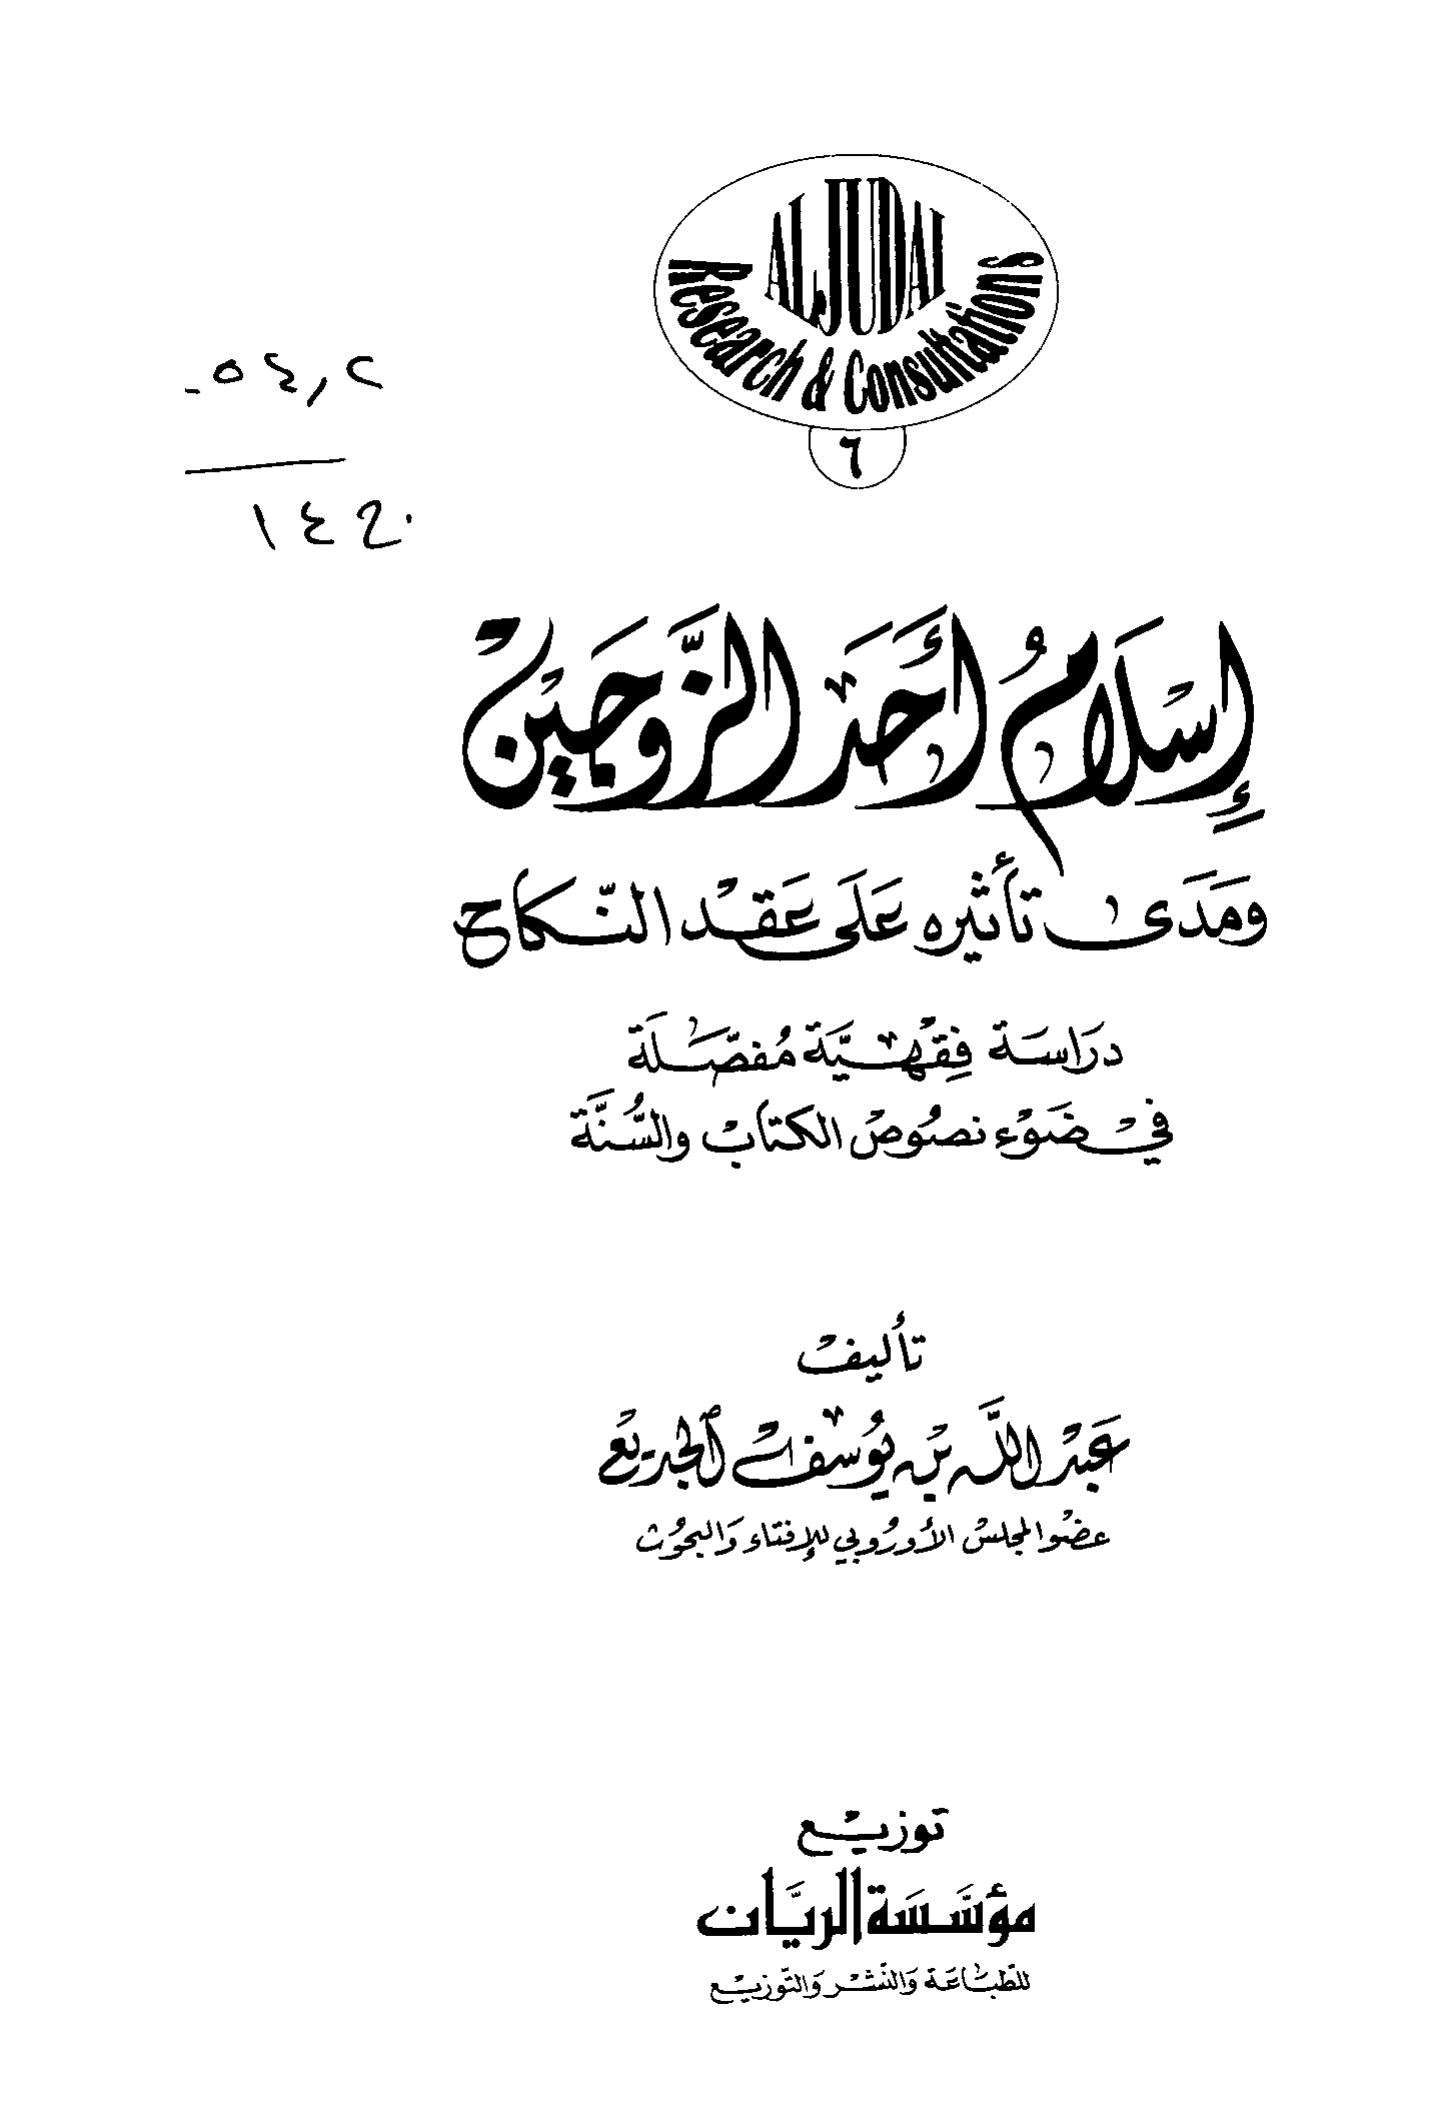 ALJUDAI
Research & Consultations
٦
٠٥٤,٢
١٤٢٠
إِسْلَامُ أَحَدِ الزَّوجَيْن
وَمَدَى تأثيره عَلَى عَقْد النّكاح
دراسَة فِقْهيَّة مُفصَّلَة
في ضَوْء نصُوصْ الكتابْ والسُّنَّة
تأليفْ
عَبْد اللَّه بْن يُوسُفْ الجديع
عضو المجلسْ الأورُوبي للإفتاء وَالبحُوثْ
توزيْع
مؤسَّسَة الريَّان
للطّبَاعَة وَالنّشْر وَالتّوزيْع